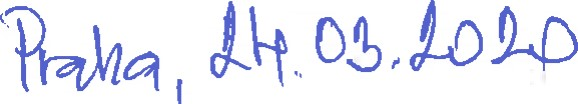 Praha, 24.03.2020